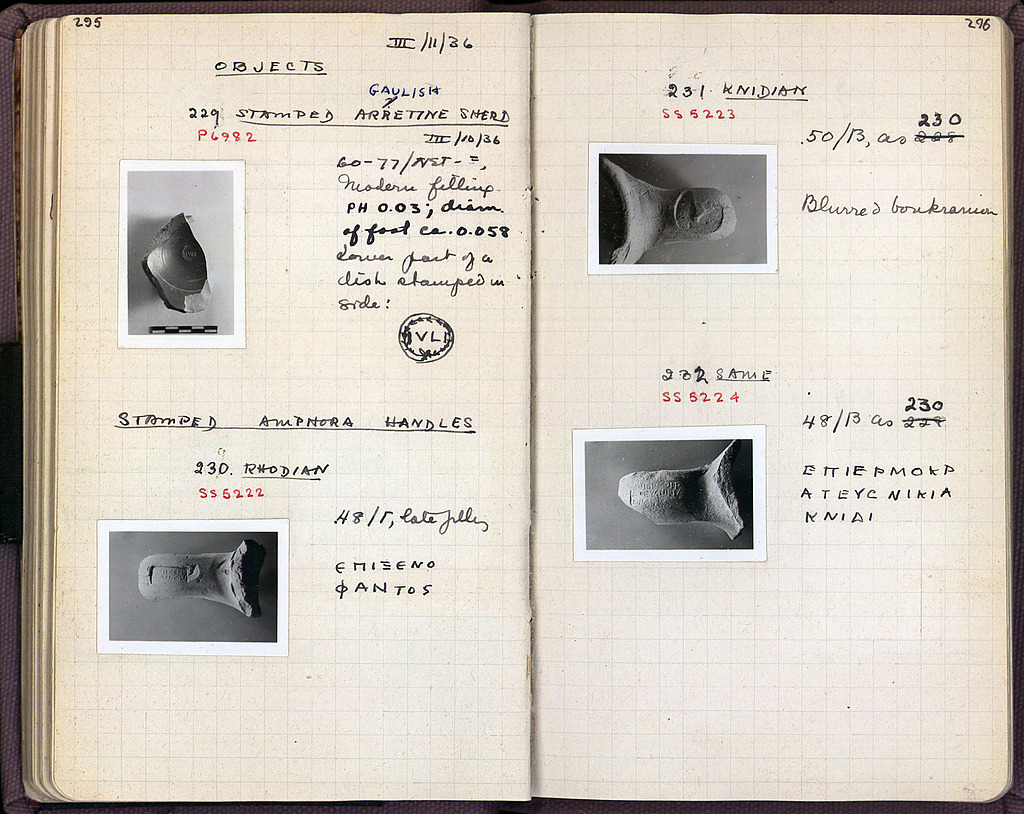 295
III/11/36
OBJECTS
GAULISH
229 STAMPED ARRETINE SHERD
P6982
III/10/36
60-77/
Modern filling.
PH 0.03; diam.
of foot ca. 0.058
Lower part of a
dish stamped in
side:
VLI
STAMPED AMPHORA HANDLES
230. RHODIAN
SS 5222
48/Γ, late filling
ЄΠΙΞΕΝΟ
ΦΑΝΤΟS
296
231. KNIDIAN
SS 5223
230
50/B, as 228
Blurred boukranion
232 SAME
SS 5224
230
48/B as 228
ΕΠΙΕΡΜΟΚΡ
ΑΤΕΥC ΝΙΚΙΑ
ΚΝΙΔΙ